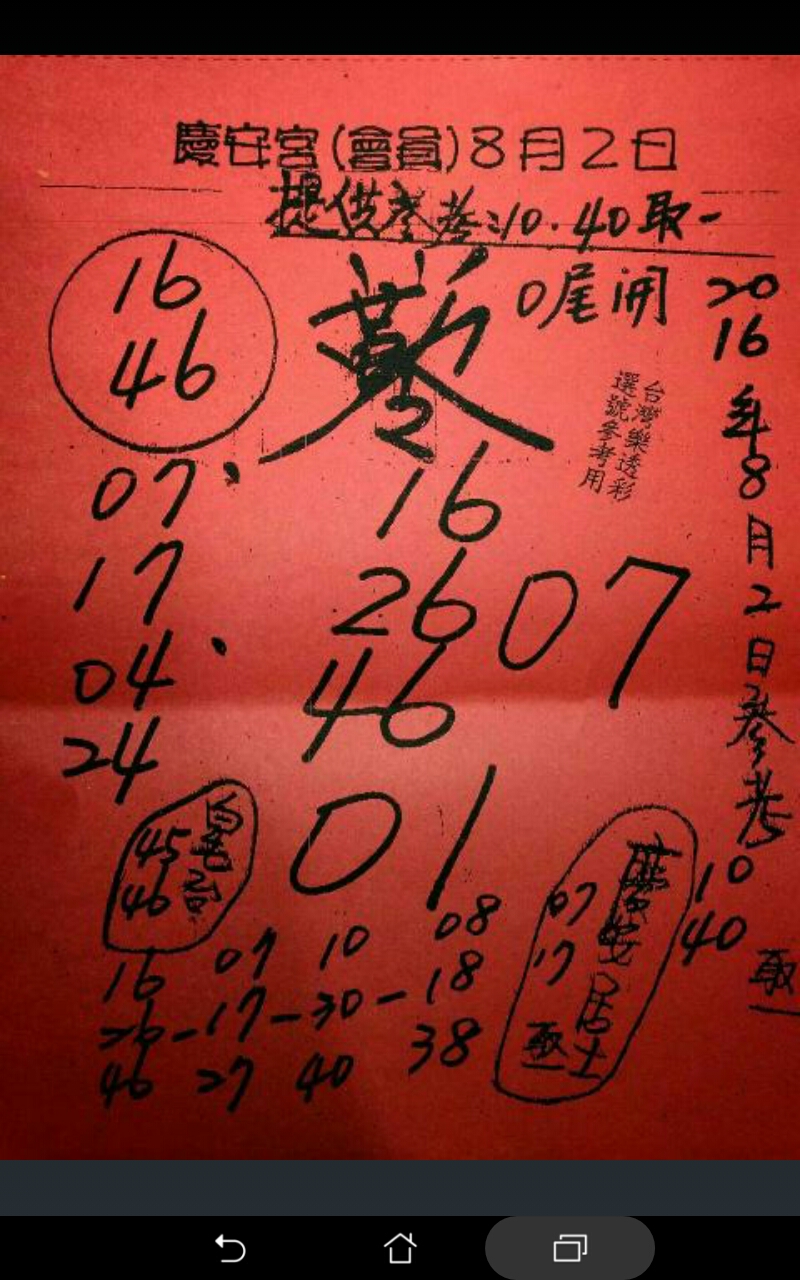 慶安宮(會員)8月2日
提供參考:10.40取一
0尾開
16
46
台灣樂透彩
選號參考用
2016年8月2日參考
10
40
取一
07
17
04
24
16
26
46
07
01
45
46
16 07 10 08
26-17-30-18
46 27 40 38
慶安居士
07
17
取一